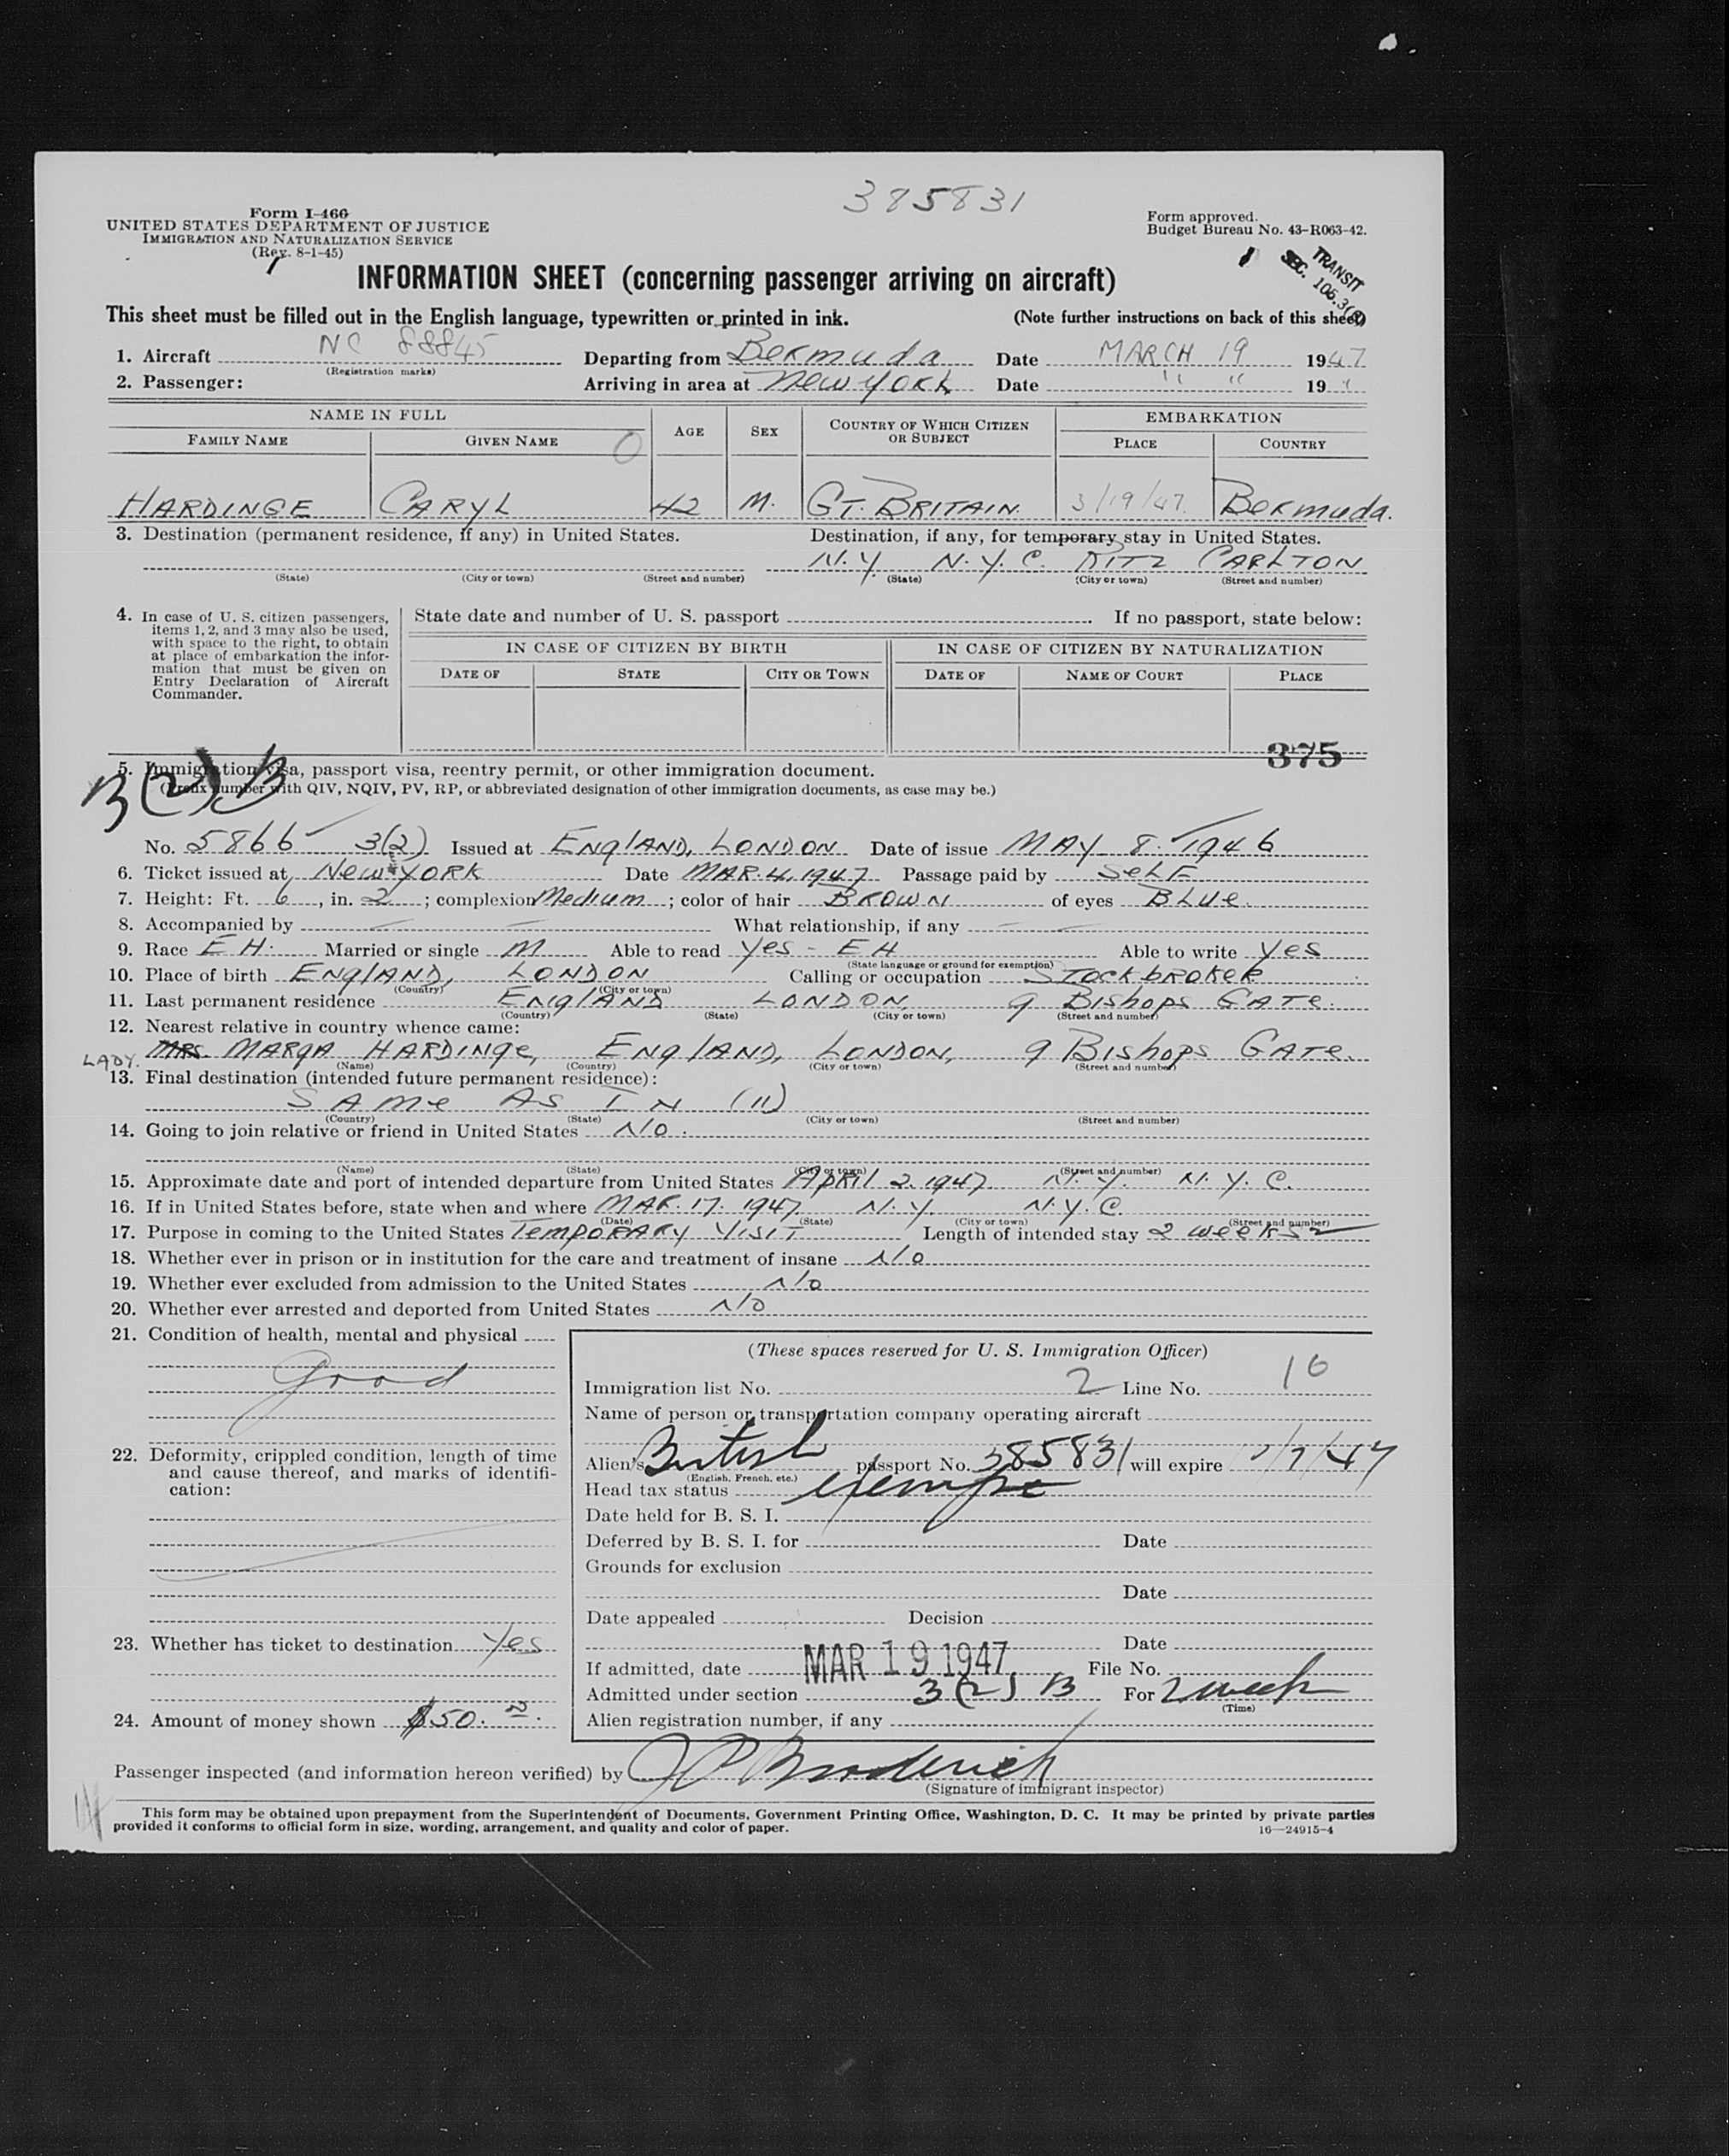 385831
Form I-466
UNITED STATES DEPARTMENT OF JUSTICE
IMMIGRATION AND NATURALIZATION SERVICE
(Rev. 8-1-45)
Form approved.
Budget Bureau No. 43-R063-42.
TRANSIT
SEC. 105.3
INFORMATION SHEET (concerning passenger arriving on aircraft)
This sheet must be filled out in the English language, typewritten or printed in ink. (Note further instructions on back of this sheet)
1. Aircraft NC 88845 Departing from Bermuda Date MARCH 19 1947
(Registration marks)
2. Passenger: Arriving in area at New York Date " " 19 "
NAME IN FULL AGE SEX COUNTRY OF WHICH CITIZEN OR SUBJECT EMBARKATION
FAMILY NAME GIVEN NAME PLACE COUNTRY
HARDINGE CARYL 42 M. GT. BRITAIN. 3/19/47. Bermuda.
3. Destination (permanent residence, if any) in United States. Destination, if any, for temporary stay in United States.
N.Y. N.Y.C. RITZ CARLTON
(State) (City or town) (Street and number) (State) (City or town) (Street and number)
4. In case of U. S. citizen passengers, items 1, 2, and 3 may also be used, with space to the right, to obtain at place of embarkation the information that must be given on Entry Declaration of Aircraft Commander.
State date and number of U. S. passport If no passport, state below:
IN CASE OF CITIZEN BY BIRTH IN CASE OF CITIZEN BY NATURALIZATION
DATE OF STATE CITY OR TOWN DATE OF NAME OF COURT PLACE
375
3(2)B
5. Immigration visa, passport visa, reentry permit, or other immigration document.
(Prefix number with QIV, NQIV, PV, RP, or abbreviated designation of other immigration documents, as case may be.)
No. 5866 3(2) Issued at ENGLAND, LONDON Date of issue MAY 8. 1946
6. Ticket issued at New YORK Date MAR. 4, 1947 Passage paid by SELF
7. Height: Ft. 6, in. 2; complexion Medium; color of hair BROWN of eyes BLUE.
8. Accompanied by What relationship, if any
9. Race E H. Married or single M Able to read Yes - EH Able to write Yes
(State language or ground for exemption)
10. Place of birth ENGLAND, LONDON Calling or occupation STOCKBROKER
(Country) (City or town)
11. Last permanent residence ENGLAND LONDON, 9 BISHOPS GATE.
(Country) (State) (City or town) (Street and number)
12. Nearest relative in country whence came:
LADY. MRS. MARGA HARDINGE, ENGLAND, LONDON, 9 BISHOPS GATE.
(Name) (Country) (City or town) (Street and number)
13. Final destination (intended future permanent residence):
SAME AS IN (11)
(Country) (State) (City or town) (Street and number)
14. Going to join relative or friend in United States NO.
(Name) (State) (City or town) (Street and number)
15. Approximate date and port of intended departure from United States APRIL 2. 1947. N.Y. N.Y.C.
16. If in United States before, state when and where MAR. 17. 1947. N.Y. N.Y.C.
(Date) (State) (City or town) (Street and number)
17. Purpose in coming to the United States TEMPORARY VISIT Length of intended stay 2 weeks
18. Whether ever in prison or in institution for the care and treatment of insane NO
19. Whether ever excluded from admission to the United States NO
20. Whether ever arrested and deported from United States NO
21. Condition of health, mental and physical
Good
22. Deformity, crippled condition, length of time and cause thereof, and marks of identification:
23. Whether has ticket to destination Yes
24. Amount of money shown $50.
(These spaces reserved for U. S. Immigration Officer)
Immigration list No. 2 Line No. 16
Name of person or transportation company operating aircraft
Alien's British passport No. 385831 will expire /7/47
(English, French, etc.)
Head tax status exempt
Date held for B. S. I.
Deferred by B. S. I. for Date
Grounds for exclusion
Date
Date appealed Decision
Date
If admitted, date MAR 19 1947 File No.
Admitted under section 3(2) B For 2 week
(Time)
Alien registration number, if any
Passenger inspected (and information hereon verified) by J P Broderick
(Signature of immigrant inspector)
This form may be obtained upon prepayment from the Superintendent of Documents, Government Printing Office, Washington, D. C. It may be printed by private parties
provided it conforms to official form in size, wording, arrangement, and quality and color of paper. 16—24915-4